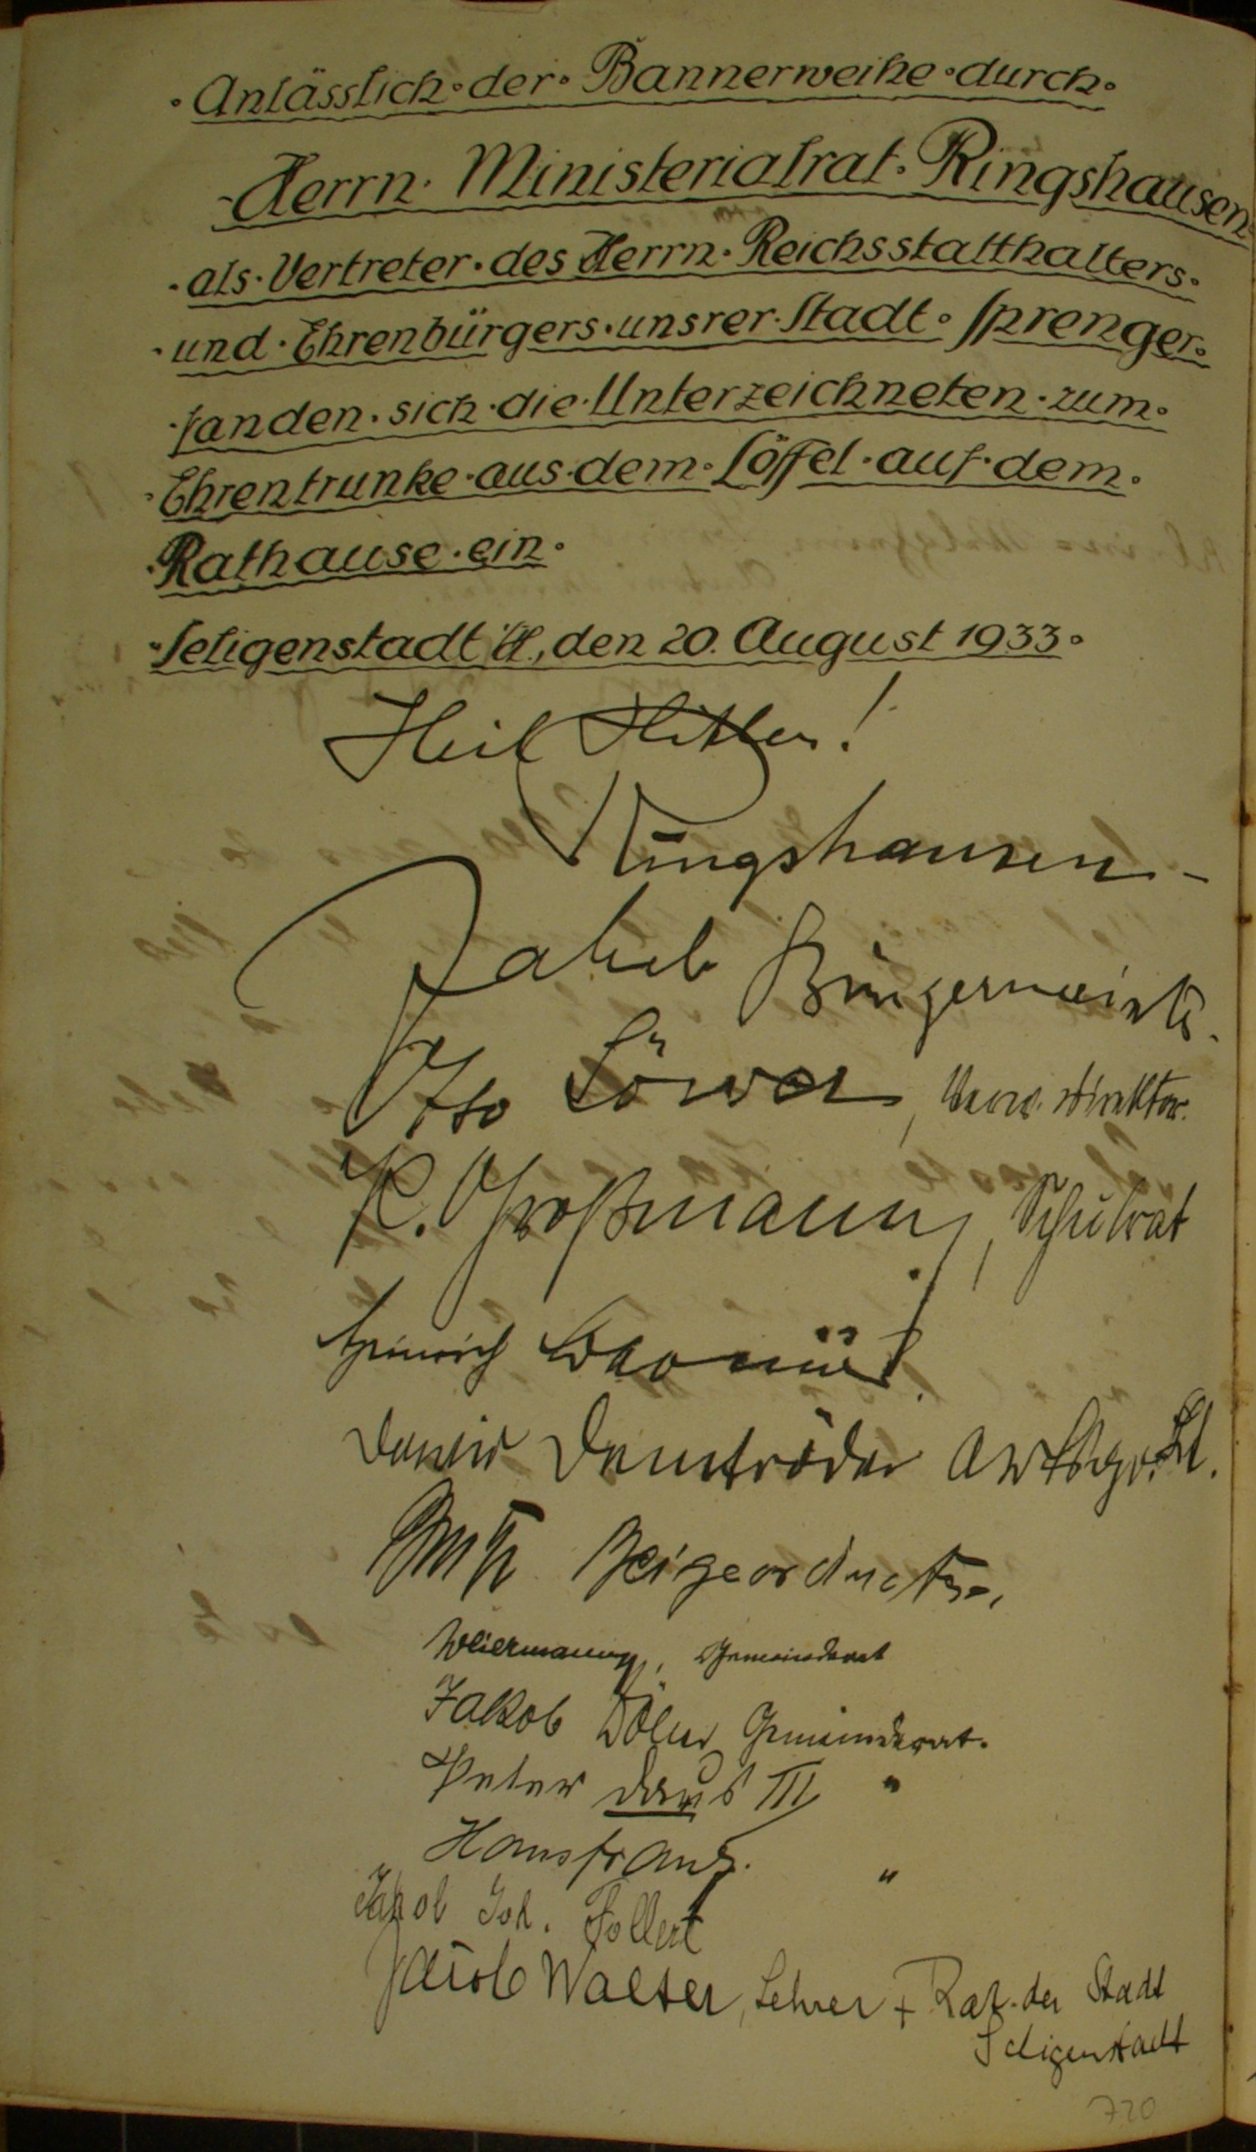 Anlässlich·der·Bannerweihe·durch·
Herrn·Ministerialrat·Ringshausen
·als·Vertreter·des Herrn·Reichsstatthalters·
·und·Ehrenbürgers·unsrer·Stadt·Sprenger·
·fanden·sich·die·Unterzeichneten·zum·
·Ehrentrunke·aus·dem·Löffel·auf·dem·
·Rathause·ein·
·Seligenstadt /H., den 20. August 1933·
Heil Hitler!
Ringshausen
Bürgermeister.
Otto, Verw. direktor.
K. Großmann, Schulrat
Heinrich
Demtröder
Beigeordneter.
Weiermann, Gemeinderat
Jakob Gemeinderat.
Peter Daus III "
Hans Franz. "
Jakob Joh. Follert
Jakob Walter, Lehrer + Rat der Stadt
Seligenstadt
720